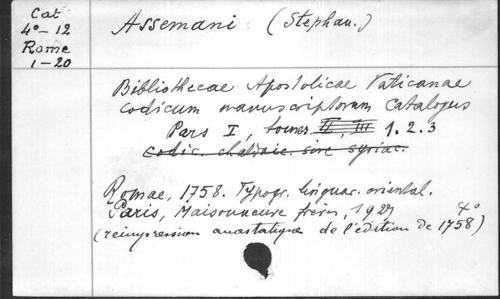 Cat
4°-12
Rome
1-20
Assemani (Stephan.)
Bibliothecae Apostolicae Vaticanae
codicum manuscriptorum Catalogus
Pars I, tomes II, III 1. 2. 3
codic. chaldaic. sive syriac.
Romae, 1758. Typogr. linguar. oriental.
Paris, Maisonneuve frères, 1927 4°
(réimpression anastatique de l'édition de 1758)